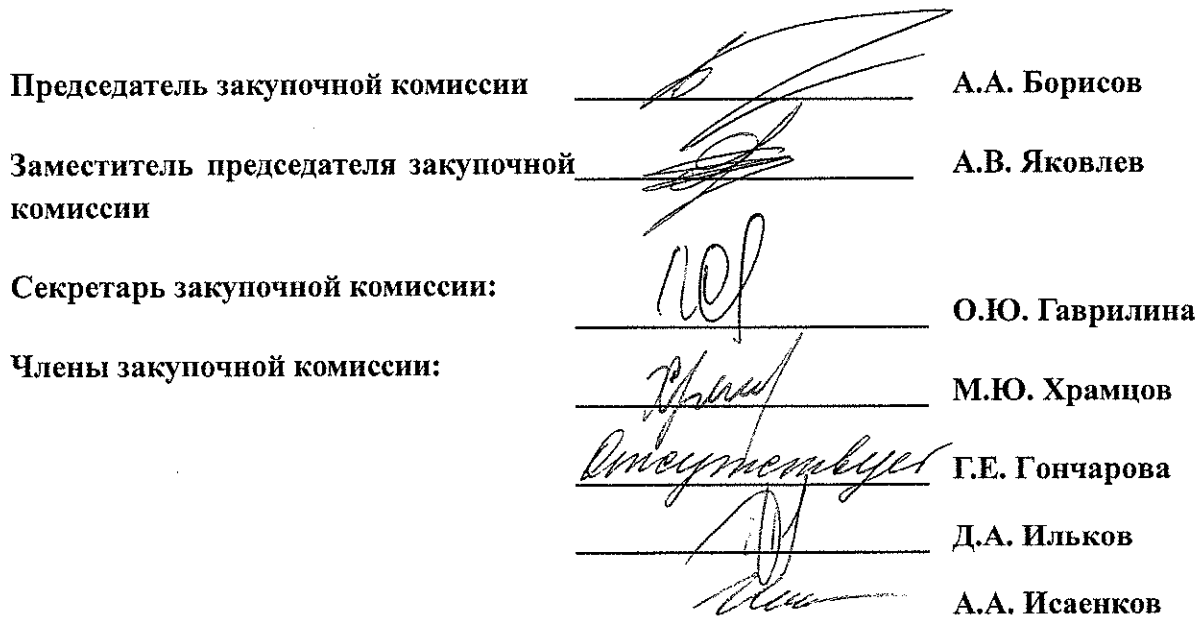 Председатель закупочной комиссии А.А. Борисов
Заместитель председателя закупочной А.В. Яковлев
комиссии
Секретарь закупочной комиссии:
О.Ю. Гаврилина
Члены закупочной комиссии:
М.Ю. Храмцов
Отсутствует Г.Е. Гончарова
Д.А. Ильков
А.А. Исаенков